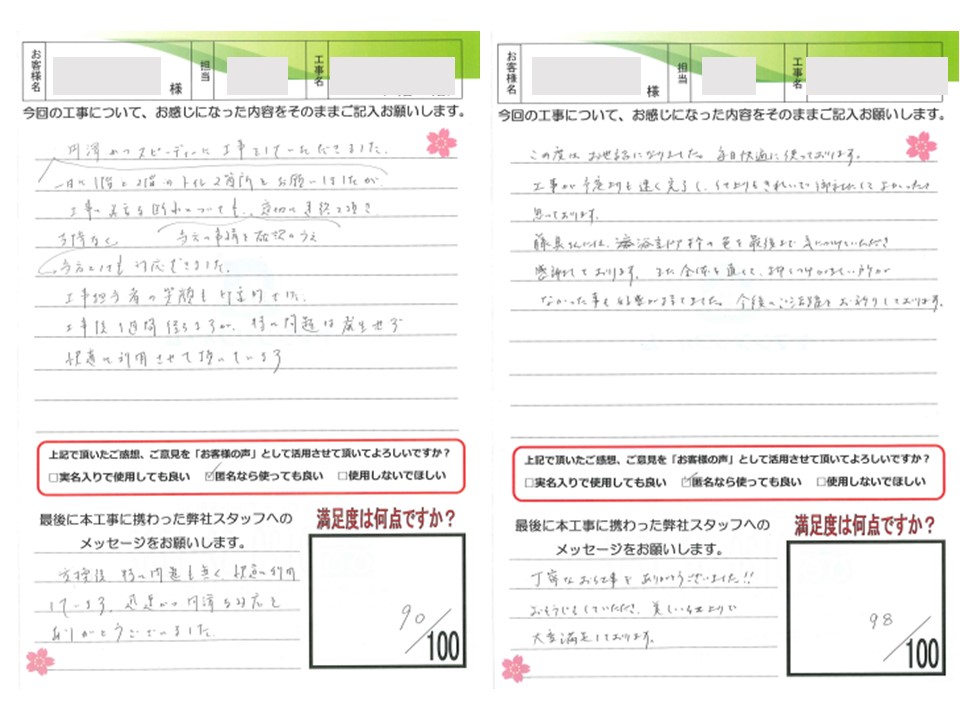 お客様名
様
担当
工事名
今回の工事について、お感じになった内容をそのままご記入お願いします。
円滑かつスピーディーに工事をしていただきました。
一日に1階と2階のトイレ2箇所をお願いしましたが
工事に
断水についても、適切に連絡を頂き
支障なく 当方の事情を確認のうえ
当方としても対応できました。
工事担当者の笑顔も印象的でした。
工事後1週間経ちますが、特に問題は発生せず
快適に利用させて頂いています
上記で頂いたご感想、ご意見を「お客様の声」として活用させて頂いてよろしいですか？
□実名入りで使用しても良い ☑匿名なら使っても良い □使用しないでほしい
最後に本工事に携わった弊社スタッフへの
メッセージをお願いします。
交換後 特に問題も無く 快適に利用
しています。迅速かつ円滑な対応を
ありがとうございました
満足度は何点ですか？
90/100
お客様名
様
担当
工事名
今回の工事について、お感じになった内容をそのままご記入お願いします。
この度はお世話になりました。毎日快適に使っております。
工事が予定よりも速く完了し、仕上りもきれいで御社にしてよかったと
思っております。
の色を最後まで気にかけていただき
感謝しております。また全体を通して、押しつけがましい所が
なかった事も好感がもてました。今後のご活躍をお祈りしております。
上記で頂いたご感想、ご意見を「お客様の声」として活用させて頂いてよろしいですか？
□実名入りで使用しても良い ☑匿名なら使っても良い □使用しないでほしい
最後に本工事に携わった弊社スタッフへの
メッセージをお願いします。
丁寧なお仕事をありがとうございました!!
おそうじもしていただき、美しい仕上りで
大変満足しております。
満足度は何点ですか？
98/100